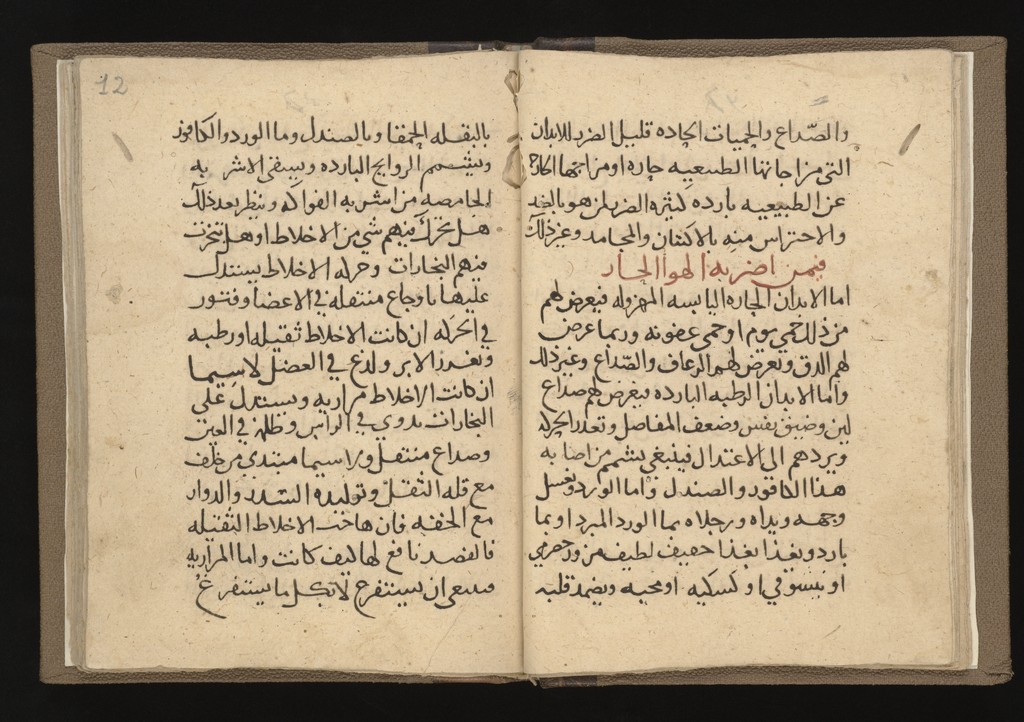 والصّداع والحميات الحاده قليل الضرر للابدان
التى مزاجاتها الطبيعيه حاره او مزاجها الخارج
عن الطبيعيه بارده كثيره الضرر لمن هو بالضد
والاحتراس منه بالاكنان والمجامد وغير ذلك
فيمن اضر به الهوا الحار
اما الابدان الحاره اليابسه المهزوله فيعرض لهم
من ذلك حمى يوم او حمى عفونه وربما عرض
لهم الدق ويعرض لهم الرعاف والصّداع وغير ذلك
واما الابدان الرطبه البارده فيعرض لهم صداع
لين وضيق نفس وضعف المفاصل وتعذر الحركه
ويردهم الى الاعتدال فينبغى يشمم من اصابه
هذا الكافور والصندل وما الورد ويغسل
وجهه ويداه ورجلاه بما الورد المبرد او بما
بارد ويغذا بغذا خفيف لطيف من
او بسوقى او كسكيه او محبه ويضمد قلبه
12
بالبقله الحمقا وبالصندل وما الورد والكافور
ويشمم الروايح البارده ويسقى الاشربه
الحامضه من اشربه الفواكه وينظر بعد ذلك
هل تحرك فيهم شي من الاخلاط او هل تحركت
فيهم البخارات وحركه الاخلاط يستدل
عليها باوجاع منتقله في الاعضا وفتور
في الحركه ان كانت الاخلاط ثقيله او رطبه
ولدع في العضل لا سيما
ان كانت الاخلاط مراريه ويستدل على
البخارات بدوي في الراس وظلمه في العين
وصداع منتقل ولا سيما مبتدي من خلف
مع قله الثقل وتوليده السدد والدوار
مع الخفه فان هاجت الاخلاط الثقيله
فالفصد نافع لها كيف كانت واما المراريه
فينبغى ان يستفرغ لا بكل ما يستفرغ